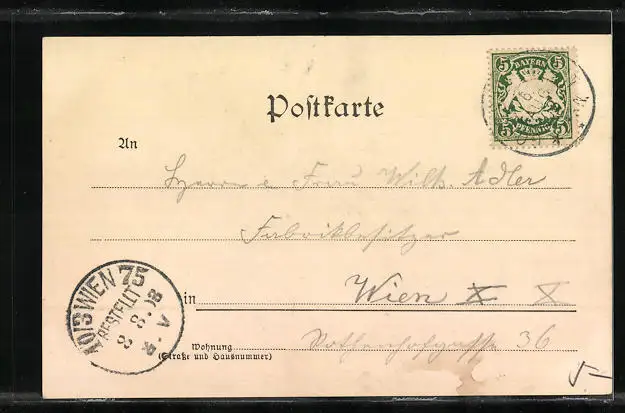 5 BAYERN 5
5 PFENNIG 5
Postkarte
An
Herrn e Frau Wilh. Adler
Fabrikbesitzer
in Wien X X
Wohnung
(Straße und Hausnummer)
36
WIEN 75
BESTELLT
8. 8.
V
5-